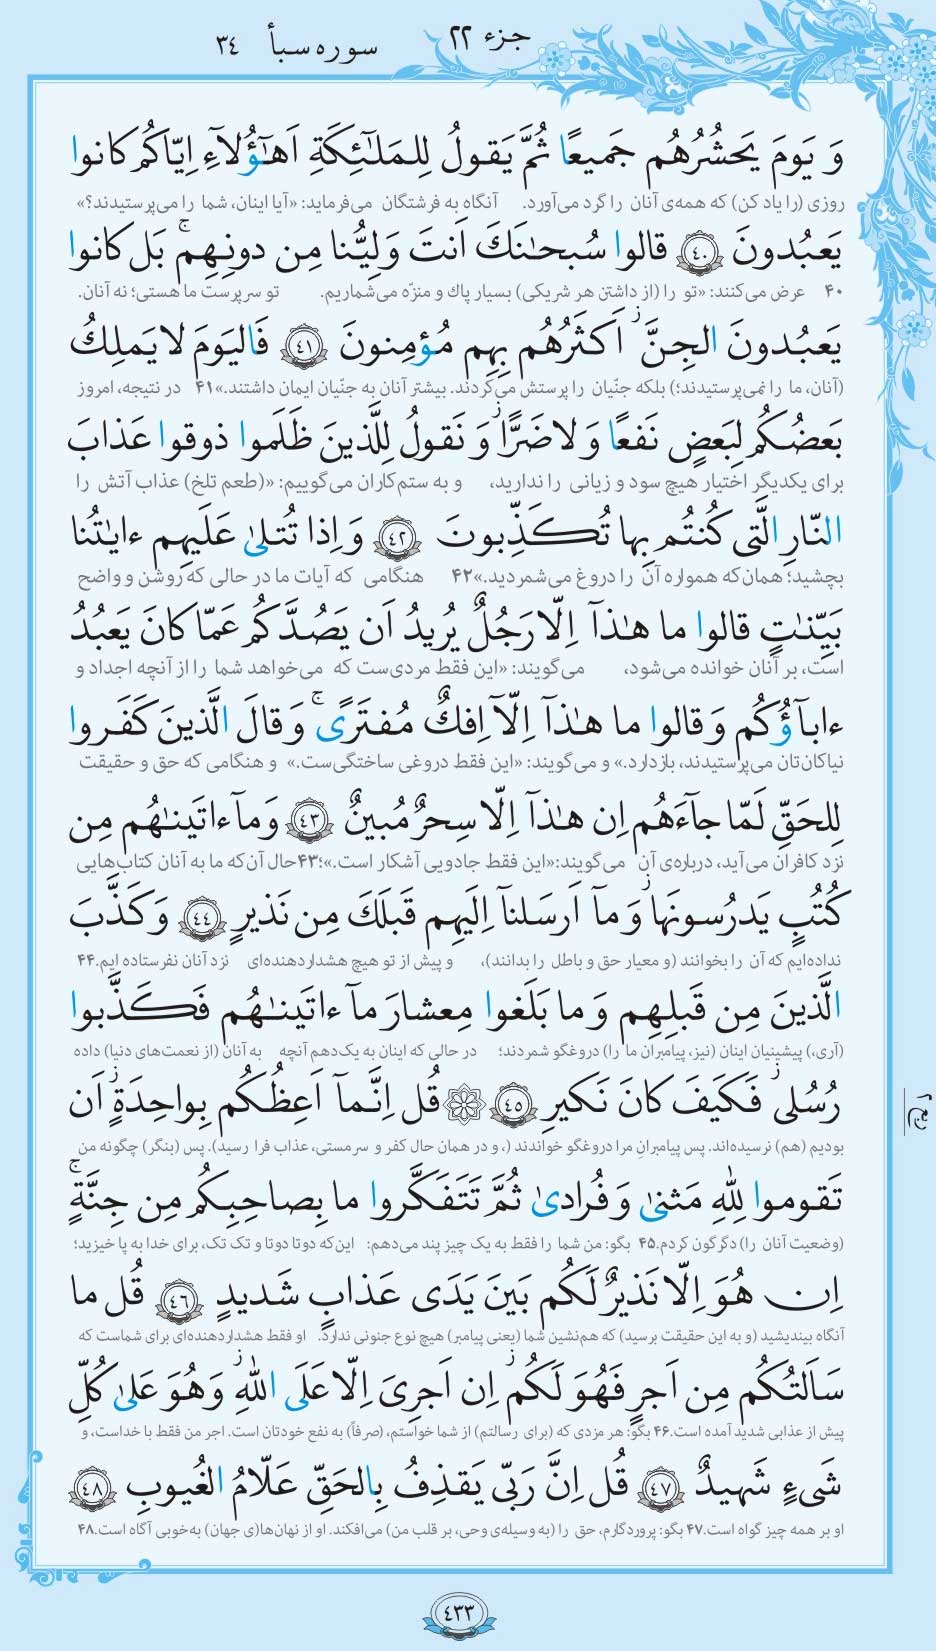 جزء ٢٢
سوره سبأ ٣٤
وَ يَومَ يَحشُرُهُم جَميعًا ثُمَّ يَقولُ لِلمَلٰٓئِكَةِ اَهٰٓؤُلآءِ اِيّاكُم كانوا
روزی (را یاد کن) که همه‌ی آنان را گرد می‌آورد. آنگاه به فرشتگان می‌فرماید: «آیا اینان، شما را می‌پرستیدند؟»
يَعبُدونَ ﴿٤٠﴾ قالوا سُبحٰنَكَ اَنتَ وَلِيُّنا مِن دونِهِم ۚ بَل كانوا
۴۰ عرض می‌کنند: «تو را (از داشتن هر شریکی) بسیار پاک و منزّه می‌شماریم. تو سرپرست ما هستی؛ نه آنان.
يَعبُدونَ الجِنَّ ۖ اَكثَرُهُم بِهِم مُؤمِنونَ ﴿٤١﴾ فَاليَومَ لا يَملِكُ
(آنان، ما را نمی‌پرستیدند؛) بلکه جنّیان را پرستش می‌کردند. بیشتر آنان به جنّیان ایمان داشتند.»۴۱ در نتیجه، امروز
بَعضُكُم لِبَعضٍ نَفعًا وَ لا ضَرًّا وَ نَقولُ لِلَّذينَ ظَلَموا ذوقوا عَذابَ
برای یکدیگر اختیار هیچ سود و زیانی را ندارید، و به ستم‌کاران می‌گوییم: «(طعم تلخ) عذاب آتش را
النّارِ الَّتي كُنتُم بِها تُكَذِّبونَ ﴿٤٢﴾ وَ اِذا تُتلىٰ عَلَيهِم ءايٰتُنا
بچشید؛ همان‌که همواره آن را دروغ می‌شمردید.»۴۲ هنگامی که آیات ما در حالی که روشن و واضح
بَيِّنٰتٍ قالوا ما هٰذآ اِلّا رَجُلٌ يُريدُ اَن يَصُدَّكُم عَمّا كانَ يَعبُدُ
است، بر آنان خوانده می‌شود، می‌گویند: «این فقط مردی‌ست که می‌خواهد شما را از آنچه اجداد و
ءابآؤُكُم وَ قالوا ما هٰذآ اِلّآ اِفكٌ مُفتَرًى ۚ وَ قالَ الَّذينَ كَفَروا
نیاکان‌تان می‌پرستیدند، بازدارد.» و می‌گویند: «این فقط دروغی ساختگی‌ست.» و هنگامی که حق و حقیقت
لِلحَقِّ لَمّا جآءَهُم اِن هٰذآ اِلّا سِحرٌ مُبينٌ ﴿٤٣﴾ وَ مآ ءاتَينٰهُم مِن
نزد کافران می‌آید، درباره‌ی آن می‌گویند:«این فقط جادویی آشکار است.»؛۴۳حال آن‌که ما به آنان کتاب‌هایی
كُتُبٍ يَدرُسونَها وَ مآ اَرسَلنآ اِلَيهِم قَبلَكَ مِن نَذيرٍ ﴿٤٤﴾ وَ كَذَّبَ
نداده‌ایم که آن را بخوانند (و معیار حق و باطل را بدانند)، و پیش از تو هیچ هشداردهنده‌ای نزد آنان نفرستاده ایم.۴۴
الَّذينَ مِن قَبلِهِم وَ ما بَلَغوا مِعشارَ مآ ءاتَينٰهُم فَكَذَّبوا
(آری،) پیشینیان اینان (نیز، پیامبران ما را) دروغگو شمردند؛ در حالی که اینان به یک‌دهم آنچه به آنان (از نعمت‌های دنیا) داده
رُسُلي فَكَيفَ كانَ نَكيرِ ﴿٤٥﴾ ۞ قُل اِنَّمآ اَعِظُكُم بِواحِدَةٍ اَن
بودیم (هم) نرسیده‌اند. پس پیامبرانِ مرا دروغگو خواندند (، و در همان حال کفر و سرمستی، عذاب فرا رسید). پس (بنگر) چگونه من
تَقوموا لِلّٰهِ مَثنىٰ وَ فُرادىٰ ثُمَّ تَتَفَكَّروا ما بِصاحِبِكُم مِن جِنَّةٍ ۚ
(وضعیت آنان را) دگرگون کردم.۴۵ بگو: من شما را فقط به یک چیز پند می‌دهم: این‌که دوتا دوتا و تک تک، برای خدا به پا خیزید؛
اِن هُوَ اِلّا نَذيرٌ لَكُم بَينَ يَدَى عَذابٍ شَديدٍ ﴿٤٦﴾ قُل ما
آنگاه بیندیشید (و به این حقیقت برسید) که هم‌نشین شما (یعنی پیامبر) هیچ نوع جنونی ندارد. او فقط هشداردهنده‌ای برای شماست که
سَاَلتُكُم مِن اَجرٍ فَهُوَ لَكُم اِن اَجرِيَ اِلّا عَلَى اللّٰهِ وَ هُوَ عَلىٰ كُلِّ
پیش از عذابی شدید آمده است.۴۶ بگو: هر مزدی که (برای رسالتم) از شما خواستم، (صرفاً) به نفع خودتان است. اجر من فقط با خداست، و
شَىءٍ شَهيدٌ ﴿٤٧﴾ قُل اِنَّ رَبّي يَقذِفُ بِالحَقِّ عَلّامُ الغُيوبِ ﴿٤٨﴾
او بر همه چیز گواه است.۴۷ بگو: پروردگارم، حق را (به وسیله‌ی وحی، بر قلب من) می‌افکند. او از نهان‌ها(ی جهان) به‌خوبی آگاه است.۴۸
٤٣٣